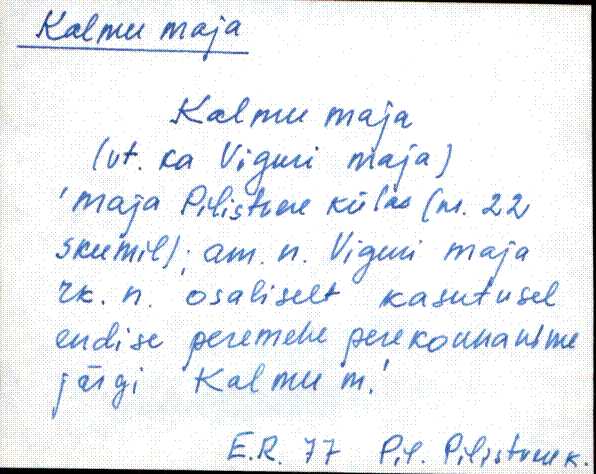 Kalmu maja
Kalmu maja
(vt. ka Viguri maja)
'maja Pilistvere külas (nr. 22
skeemil); am. n. Viguri maja
rk. n. osaliselt kasutusel
endise peremehe perekonnanime
järgi Kalmu m.'
E.R. 77 Pil. Pilistvere k.